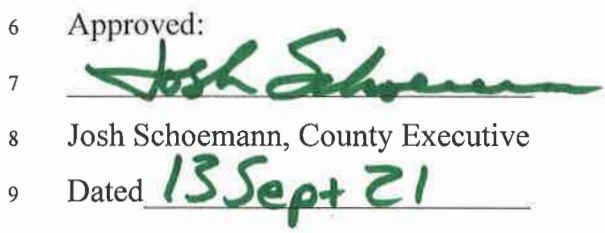 6 Approved:
7 Josh Schoemann
8 Josh Schoemann, County Executive
9 Dated 13 Sept 21